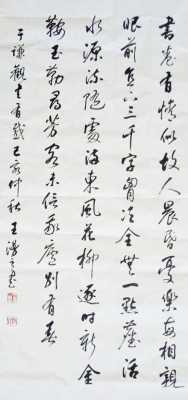 書卷有情似故人晨昏憂樂每相親
眼前直下三千字胸次全無一點塵活
水源流隨處滿東風花柳逐時新金
鞍玉勒尋芳客未信我廬別有春
于謙觀書有感己亥仲秋王書